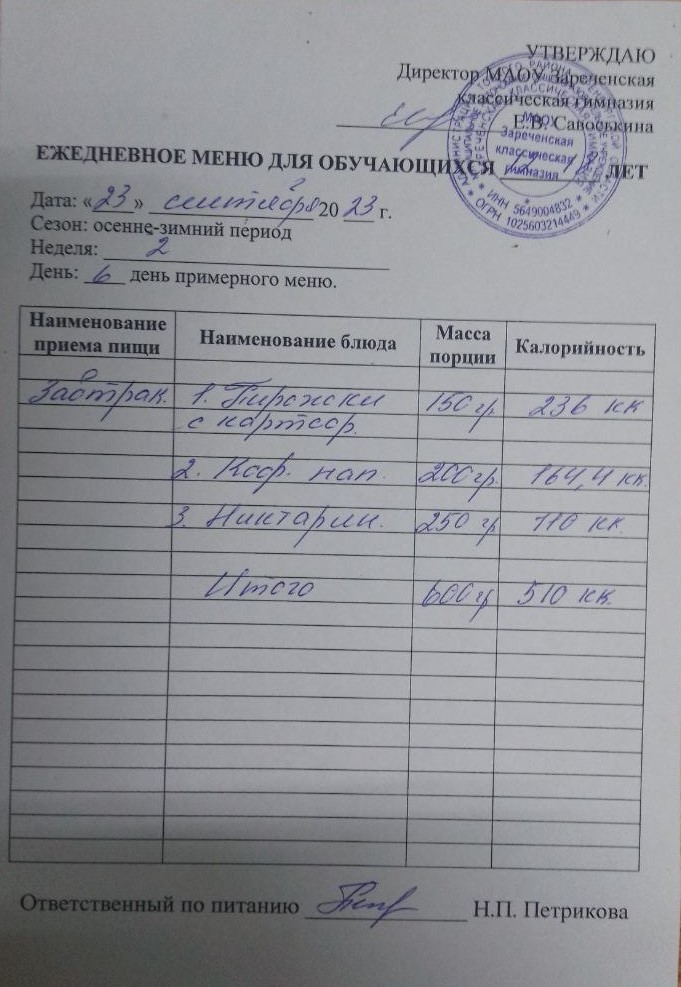 УТВЕРЖДАЮ
Директор МАОУ Зареченская
классическая гимназия
Е.В. Савоськина
МАОУ
Зареченская
классическая
гимназия
* ИНН 5649004832 *
* ОГРН 1025603214449 *
ЕЖЕДНЕВНОЕ МЕНЮ ДЛЯ ОБУЧАЮЩИХСЯ ЛЕТ
Дата: «23» сентября 20 23 г.
Сезон: осенне-зимний период
Неделя: 2
День: 6 день примерного меню.
Наименование приема пищи Наименование блюда Масса порции Калорийность
Завтрак. 1. Пирожки 150 гр 236 кк
с картоф.
2. Коф. нап. 200 гр. 164,4 кк.
3. Никтарин. 250 гр 110 кк.
Итого 600 гр 510 кк.
Ответственный по питанию Н.П. Петрикова